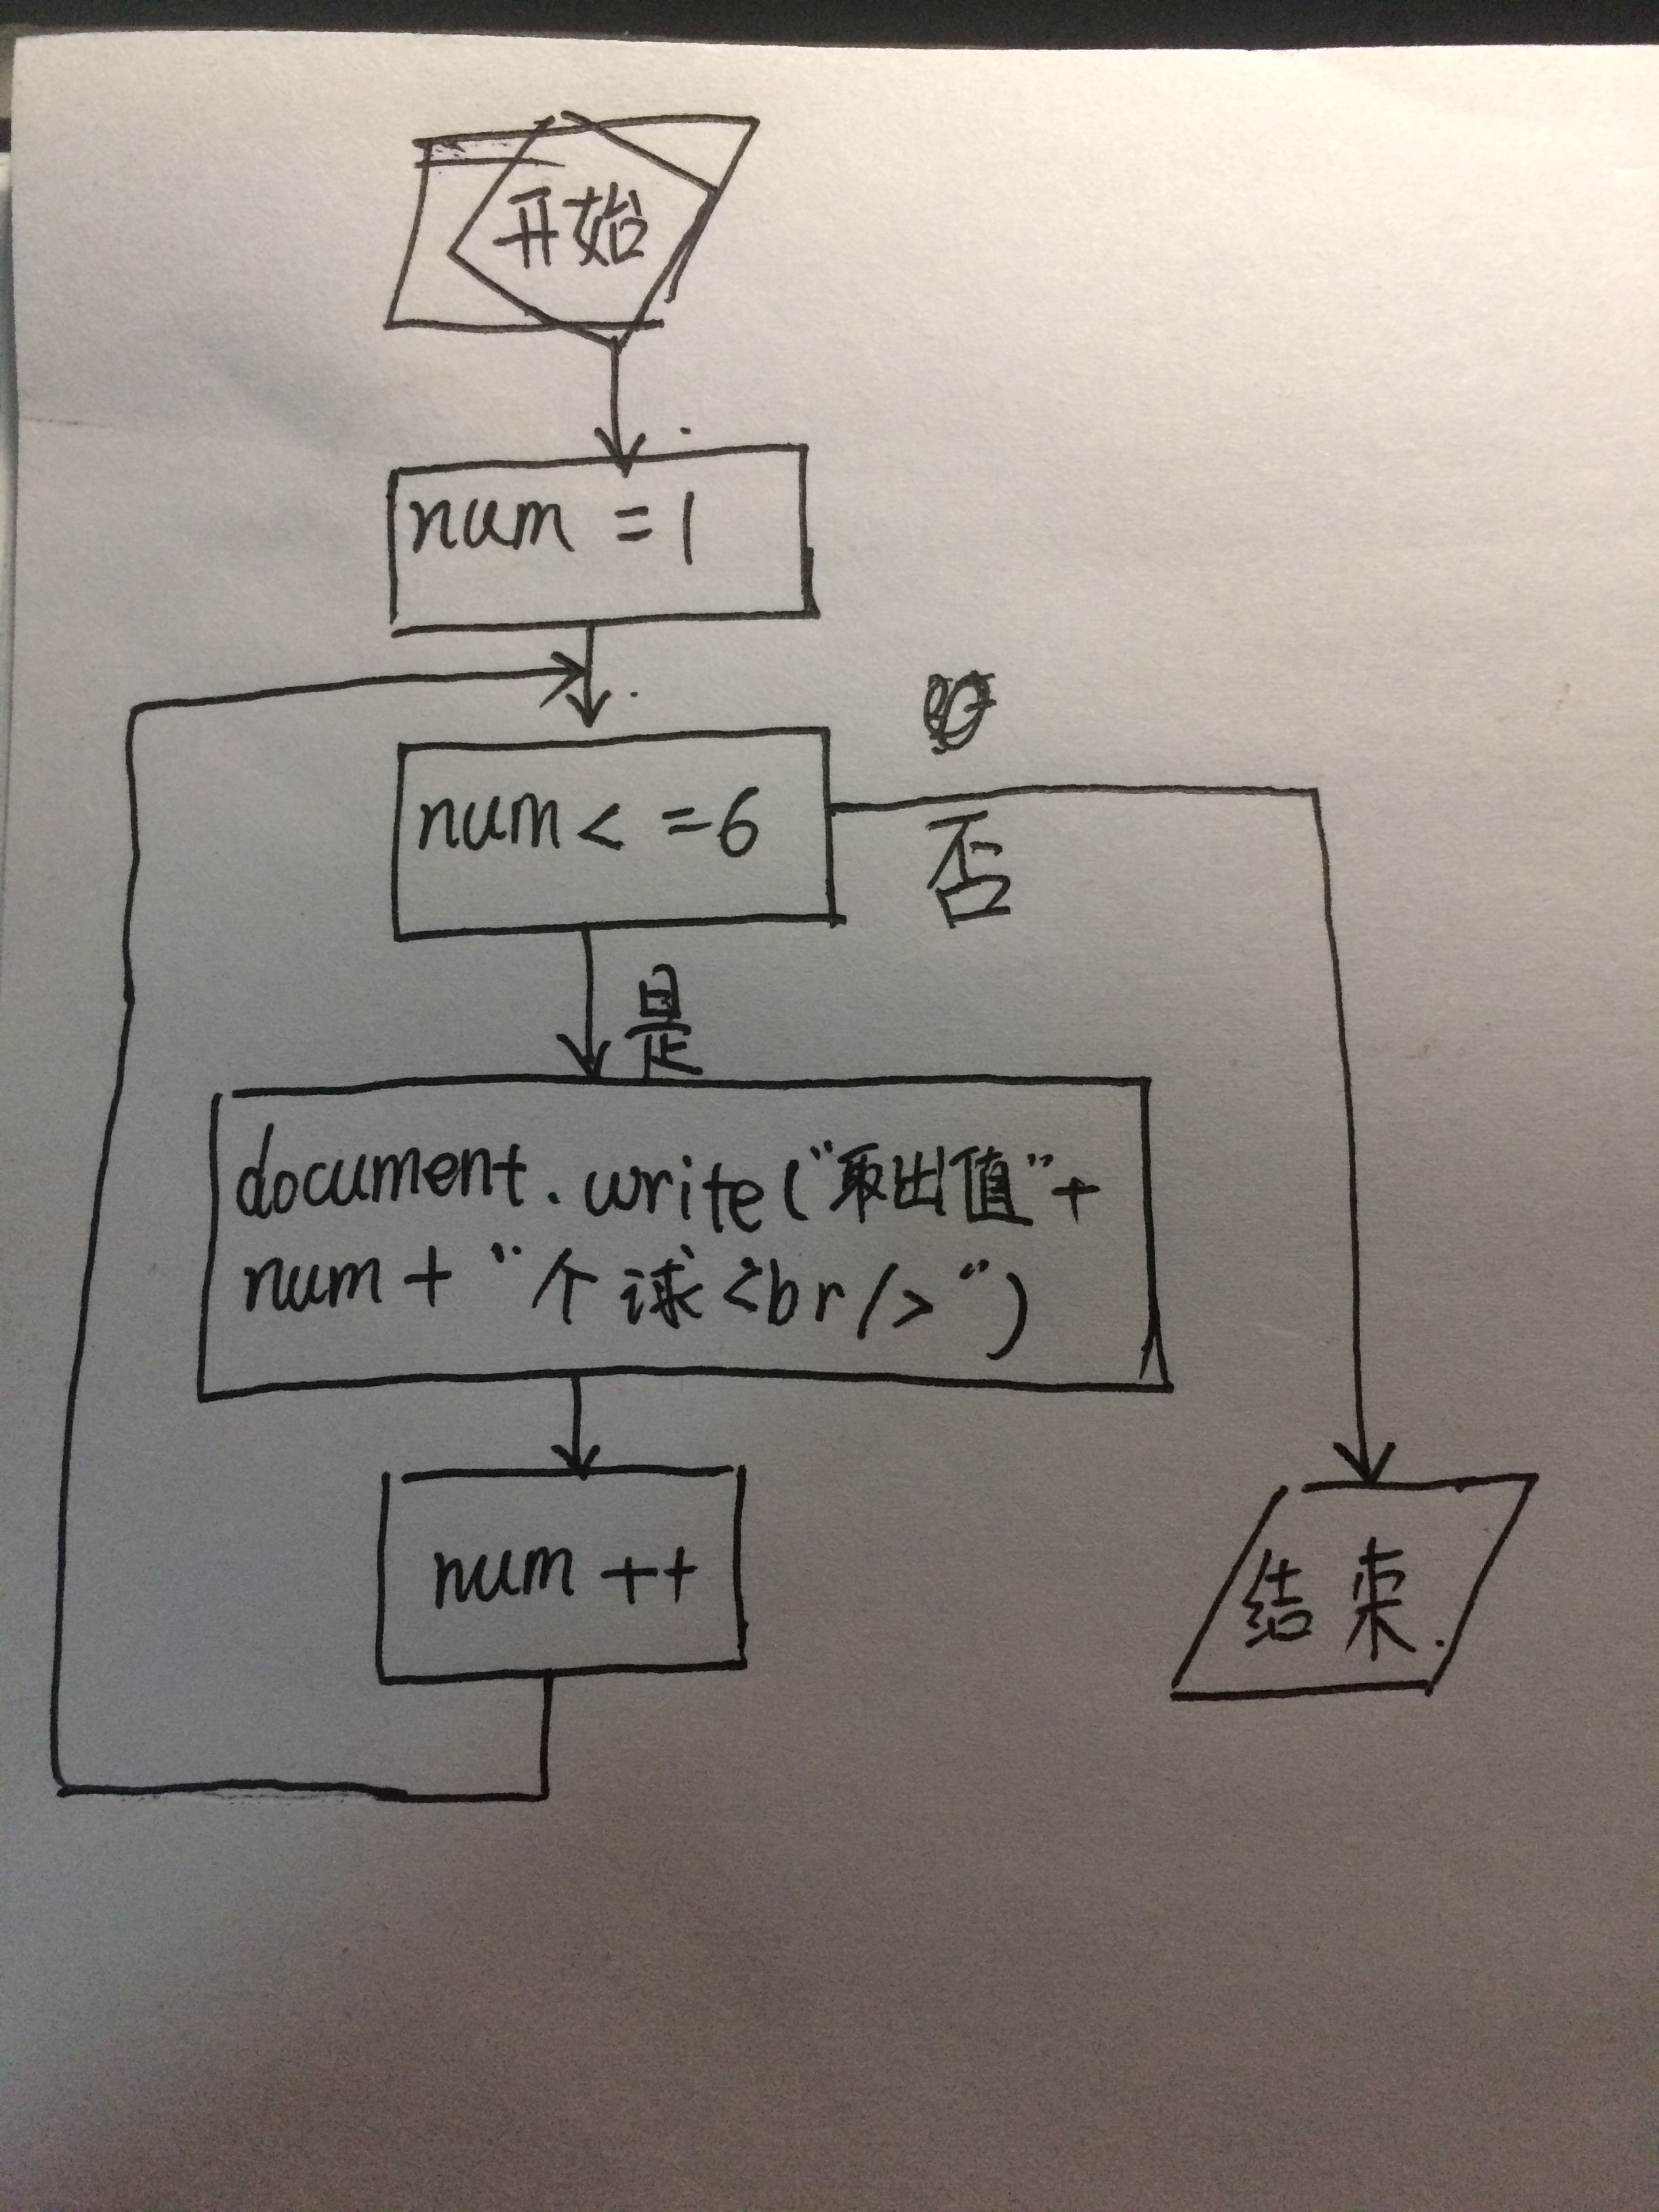 开始
num = 1
num < = 6
否
是
document.write("取出值"+
num + "个球<br/>")
num ++
结束